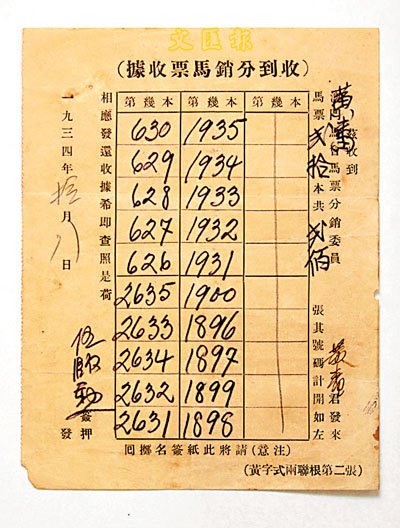 文匯報
(收到分銷馬票收據)
茲收到
馬票分銷委員
君發來
馬票貳拾本共貳佰張其號碼計開如左
第幾本 第幾本 第幾本
630 1935
629 1934
628 1933
627 1932
626 1931
2635 1900
2633 1896
2634 1897
2632 1899
2631 1898
相應發還收據希即查照是荷
簽押
發
一九三四年拾月八日
(注意)請將此紙簽名擲囘
(黃字式兩聯根第二張)